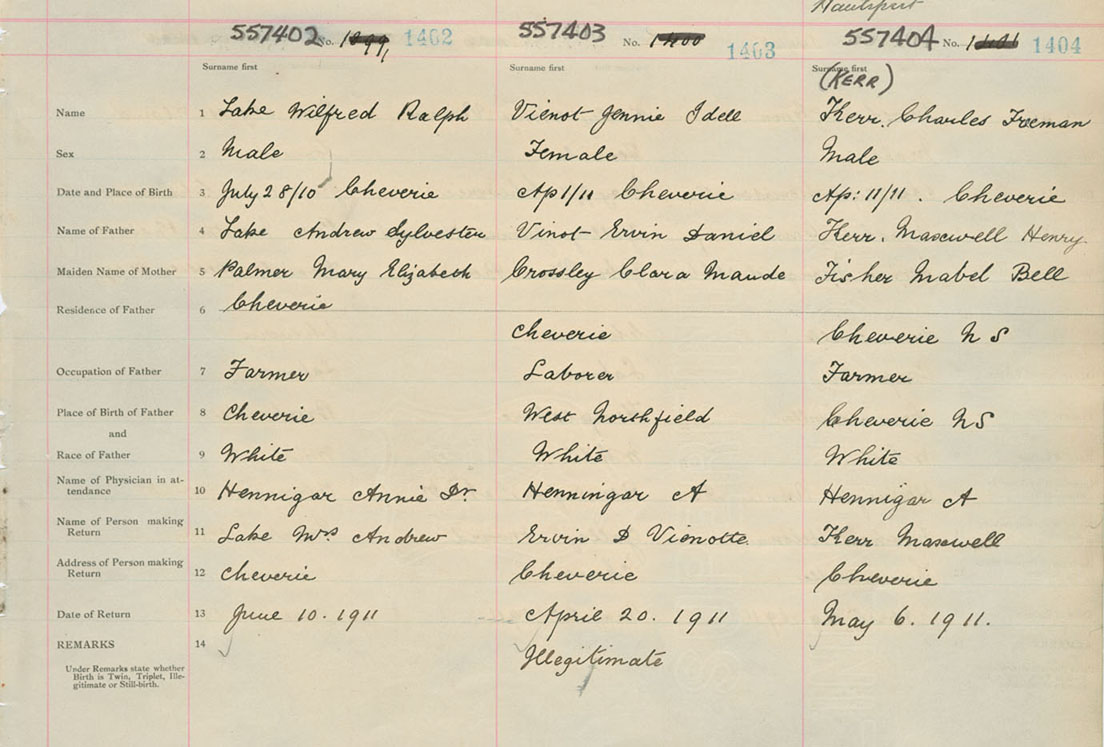 Hantsport
557402 No. 1399 1402 557403 No. 1400 1403 557404 No. 1401 1404
Surname first Surname first Surname first
(KERR)
Name 1 Lake Wilfred Ralph Vienot Jennie Idell Kerr. Charles Freeman
Sex 2 Male Female Male
Date and Place of Birth 3 July 28/10 Cheverie Ap 1/11 Cheverie Ap: 11/11. Cheverie
Name of Father 4 Lake Andrew Sylvester Vinot Ervin Daniel Kerr. Maxwell Henry.
Maiden Name of Mother 5 Palmer Mary Elizabeth Crossley Clara Maude Fisher Mabel Bell
Residence of Father 6 Cheverie Cheverie Cheverie N S
Occupation of Father 7 Farmer Laborer Farmer
Place of Birth of Father 8 Cheverie West Northfield Cheverie NS
and
Race of Father 9 White White White
Name of Physician in at-
tendance 10 Hennigar Annie Dr Henningar A Hennigar A
Name of Person making
Return 11 Lake Mrs Andrew Ervin D Vienotte. Kerr Maxwell
Address of Person making
Return 12 Cheverie Cheverie Cheverie
Date of Return 13 June 10. 1911 April 20. 1911 May 6. 1911.
REMARKS 14 Illegitimate
Under Remarks state whether
Birth is Twin, Triplet, Ille-
gitimate or Still-birth.